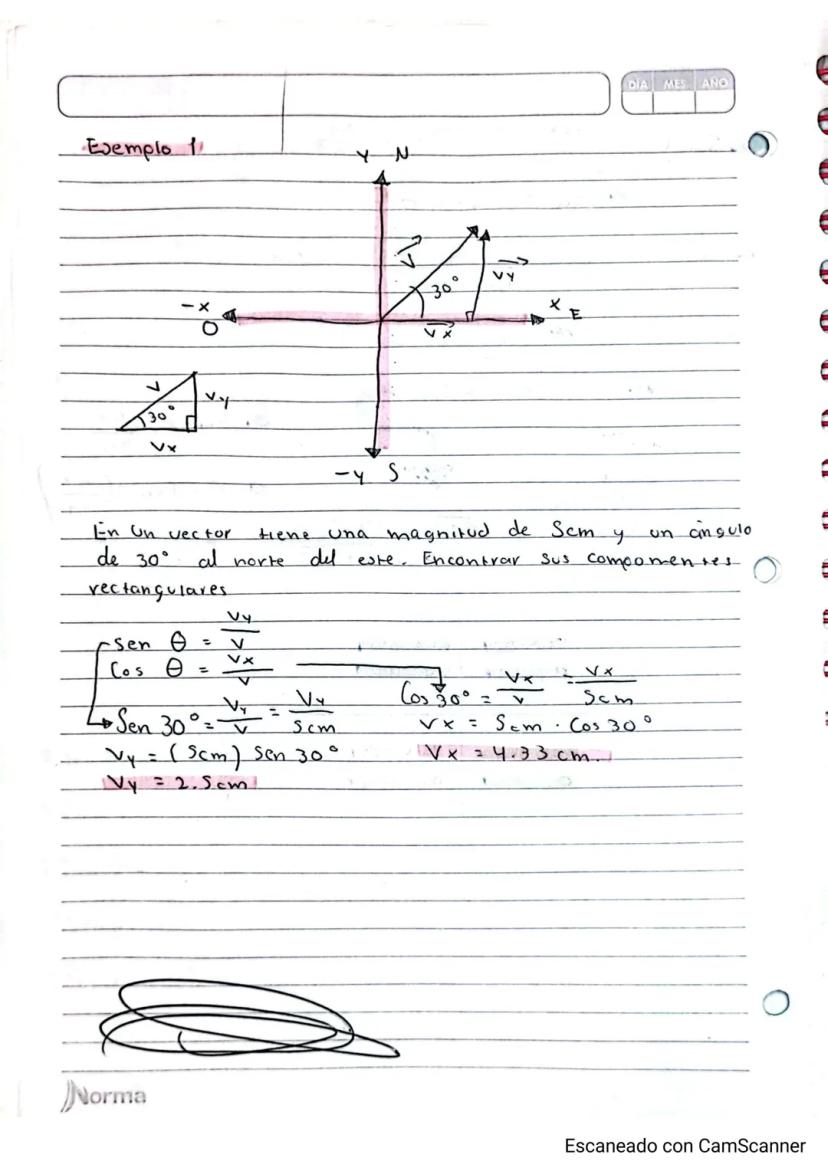 DÍA MES AÑO
Ejemplo 1
Y N
V
30°
Vy
-x
O
x E
Vx
V
30°
Vy
Vx
-y S
En Un vector tiene una magnitud de 5cm y un ángulo
de 30° al norte del este. Encontrar sus componentes
rectangulares
sen θ = Vy/V
Cos θ = Vx/V
Cos 30° = Vx/V = Vx/5cm
Sen 30° = Vy/V = Vy/5cm
Vx = 5cm · Cos 30°
Vy = (5cm) Sen 30°
Vx = 4.33 cm.
Vy = 2.5cm
Norma
Escaneado con CamScanner